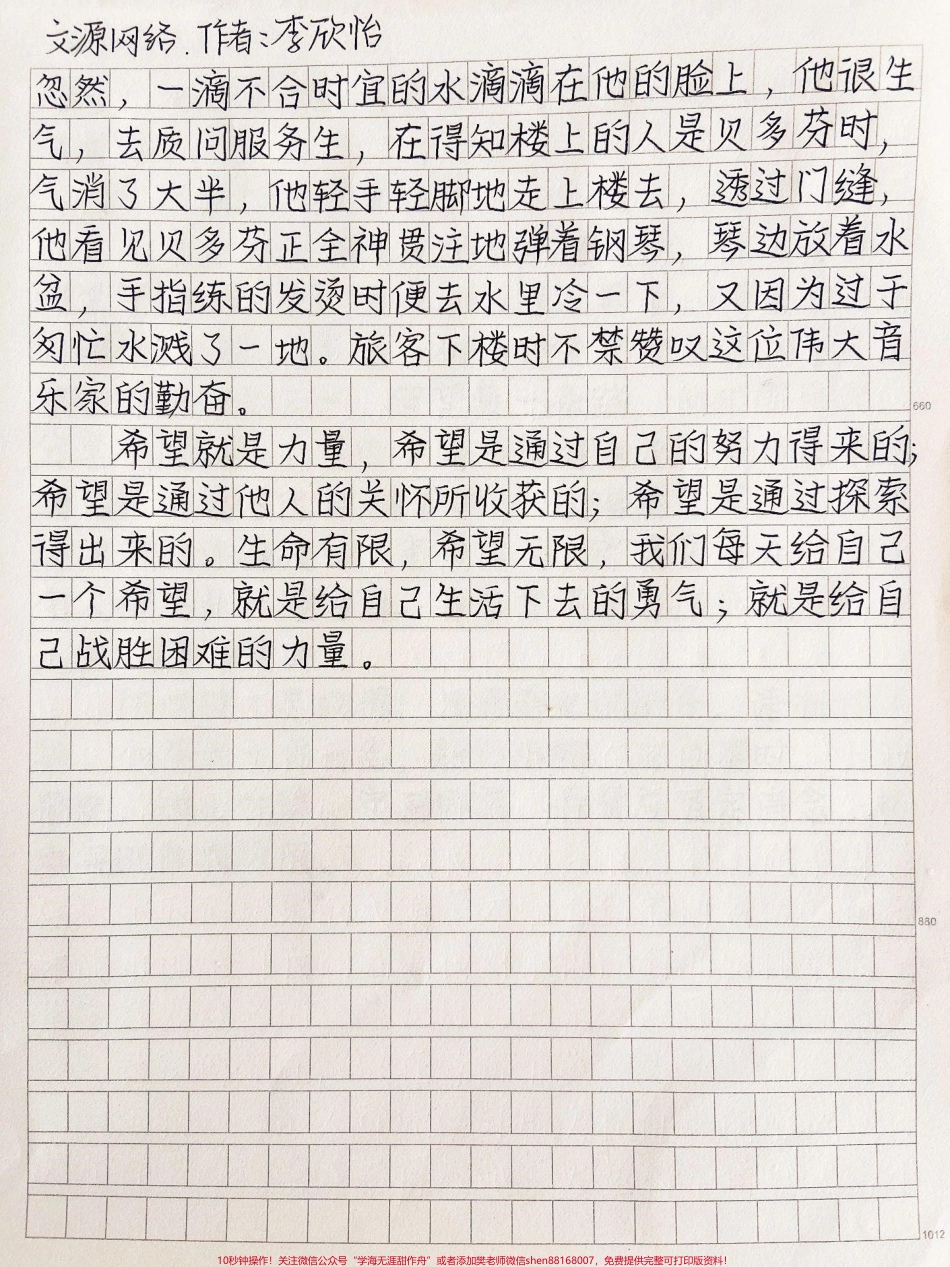 文源网络.作者:李欣怡
忽然，一滴不合时宜的水滴滴在他的脸上，他很生
气，去质问服务生，在得知楼上的人是贝多芬时，
气消了大半，他轻手轻脚地走上楼去，透过门缝，
他看见贝多芬正全神贯注地弹着钢琴，琴边放着水
盆，手指练的发烫时便去水里冷一下，又因为过于
匆忙水溅了一地。旅客下楼时不禁赞叹这位伟大音
乐家的勤奋。
660
希望就是力量，希望是通过自己的努力得来的;
希望是通过他人的关怀所收获的；希望是通过探索
得出来的。生命有限，希望无限，我们每天给自己
一个希望，就是给自己生活下去的勇气；就是给自
己战胜困难的力量。
880
1012
10秒钟操作！关注微信公众号“学海无涯甜作舟”或者添加樊老师微信shen88168007，免费提供完整可打印版资料！